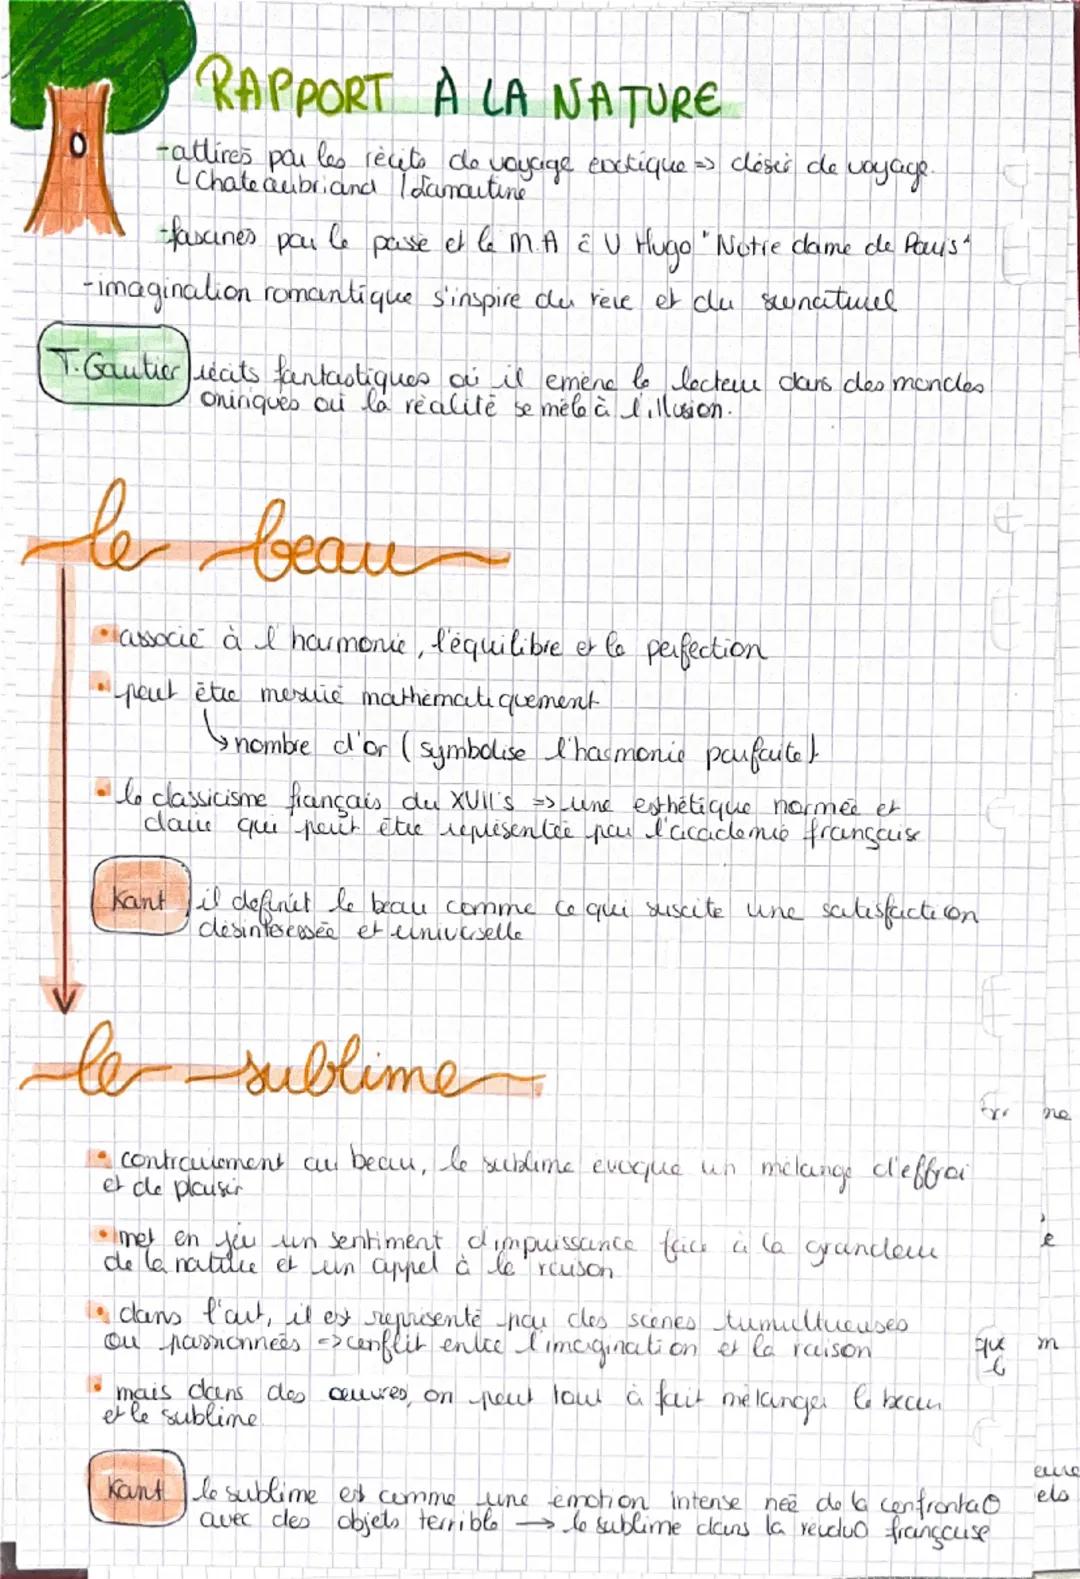 RAPPORT À LA NATURE
-attirés par les récits de voyage exotique => désir de voyage.
Chateaubriand / Lamartine
-fascinés par le passé et le M.A c̄ V Hugo "Notre dame de Paris"
-imagination romantique s'inspire du rêve et du surnaturel
T.Gautier récits fantastiques où il emène le lecteur dans des mondes
oniriques où la réalité se mêle à l'illusion.
le beau
• associé à l'harmonie, l'équilibre et la perfection
• peut être mesuré mathématiquement
↳ nombre d'or (symbolise l'harmonie parfaite)
• le classicisme français du XVII's => une esthétique normée et
claire qui peut être représentée par l'académie française
Kant il définit le beau comme ce qui suscite une satisfaction
désintéressée et universelle
le sublime
• contrairement au beau, le sublime évoque un mélange d'effroi
et de plaisir
• met en jeu un sentiment d'impuissance face à la grandeur
de la nature et un appel à la raison
• dans l'art, il est représenté par des scènes tumultueuses
ou passionnées -> conflit entre l'imagination et la raison
• mais dans des œuvres, on peut tout à fait mélanger le beau
et le sublime
Kant le sublime est comme une émotion intense née de la confrontaO
avec des objets terrible → le sublime dans la révoluO française